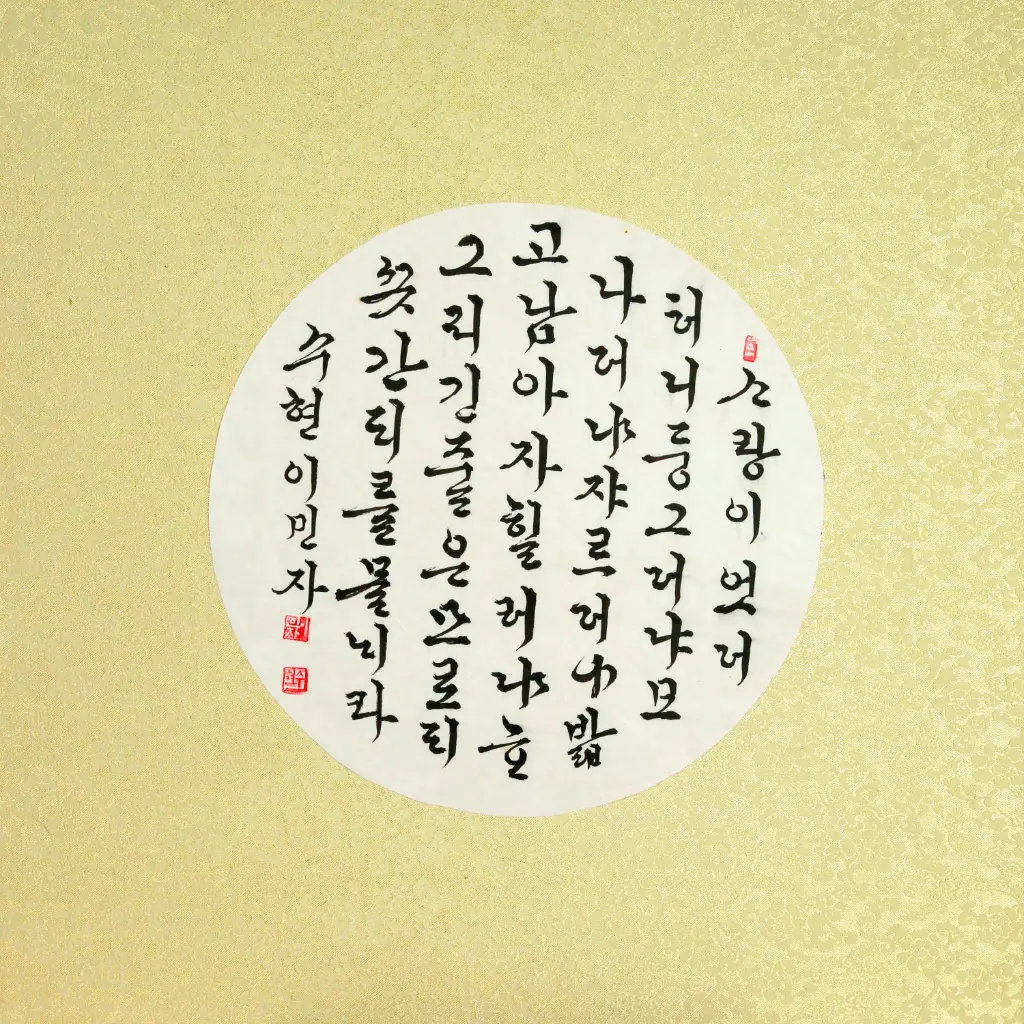 ᄉᆞ랑이엇더
허니둥그더냐모
나더냐쟈르더냐밟
고남아자힐러냐ᄒᆞ
그리긴줄은모로되
끗간되를몰ᄂᆡ라
수현이민자